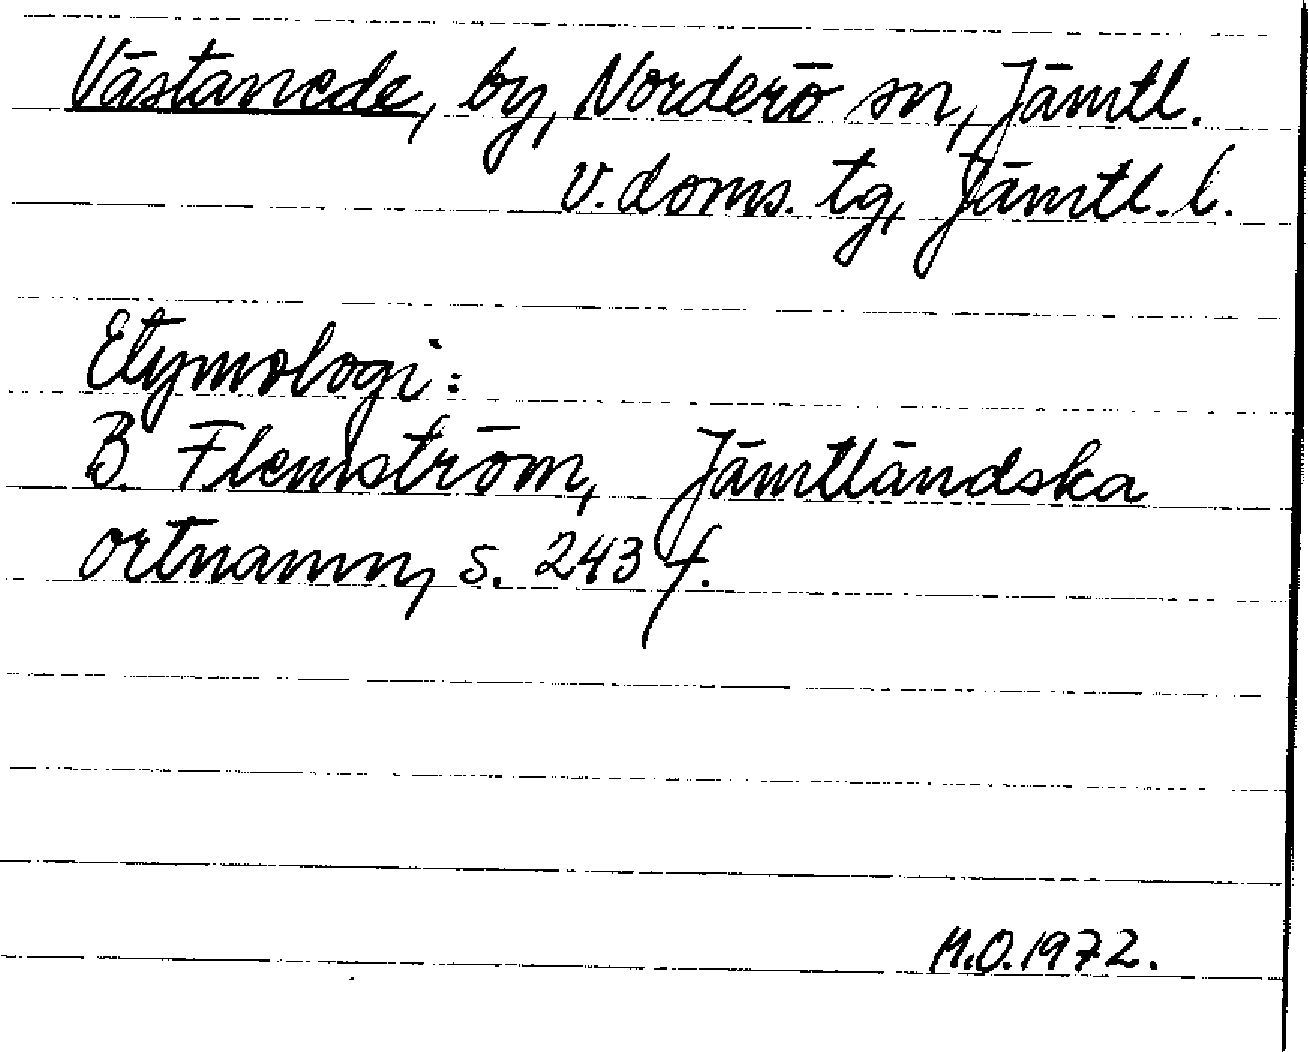 Västanede, by, Norderö sn, Jämtl.
v. doms. tg, Jämtl. l.
Etymologi:
B. Flemström, Jämtländska
ortnamn, s. 243 f.
M.O. 1972.